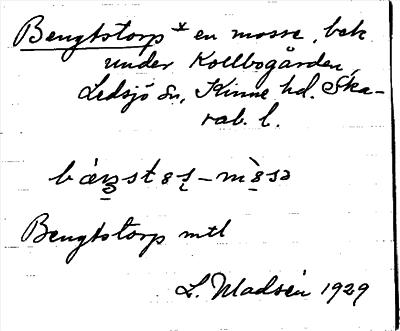 Bengtstorp * en mosse, bek
under Kollbogården,
Ledsjö sn, Kinne hd. Ska-
rab. l.
Bengtstorp mtl
L. Madsén 1929